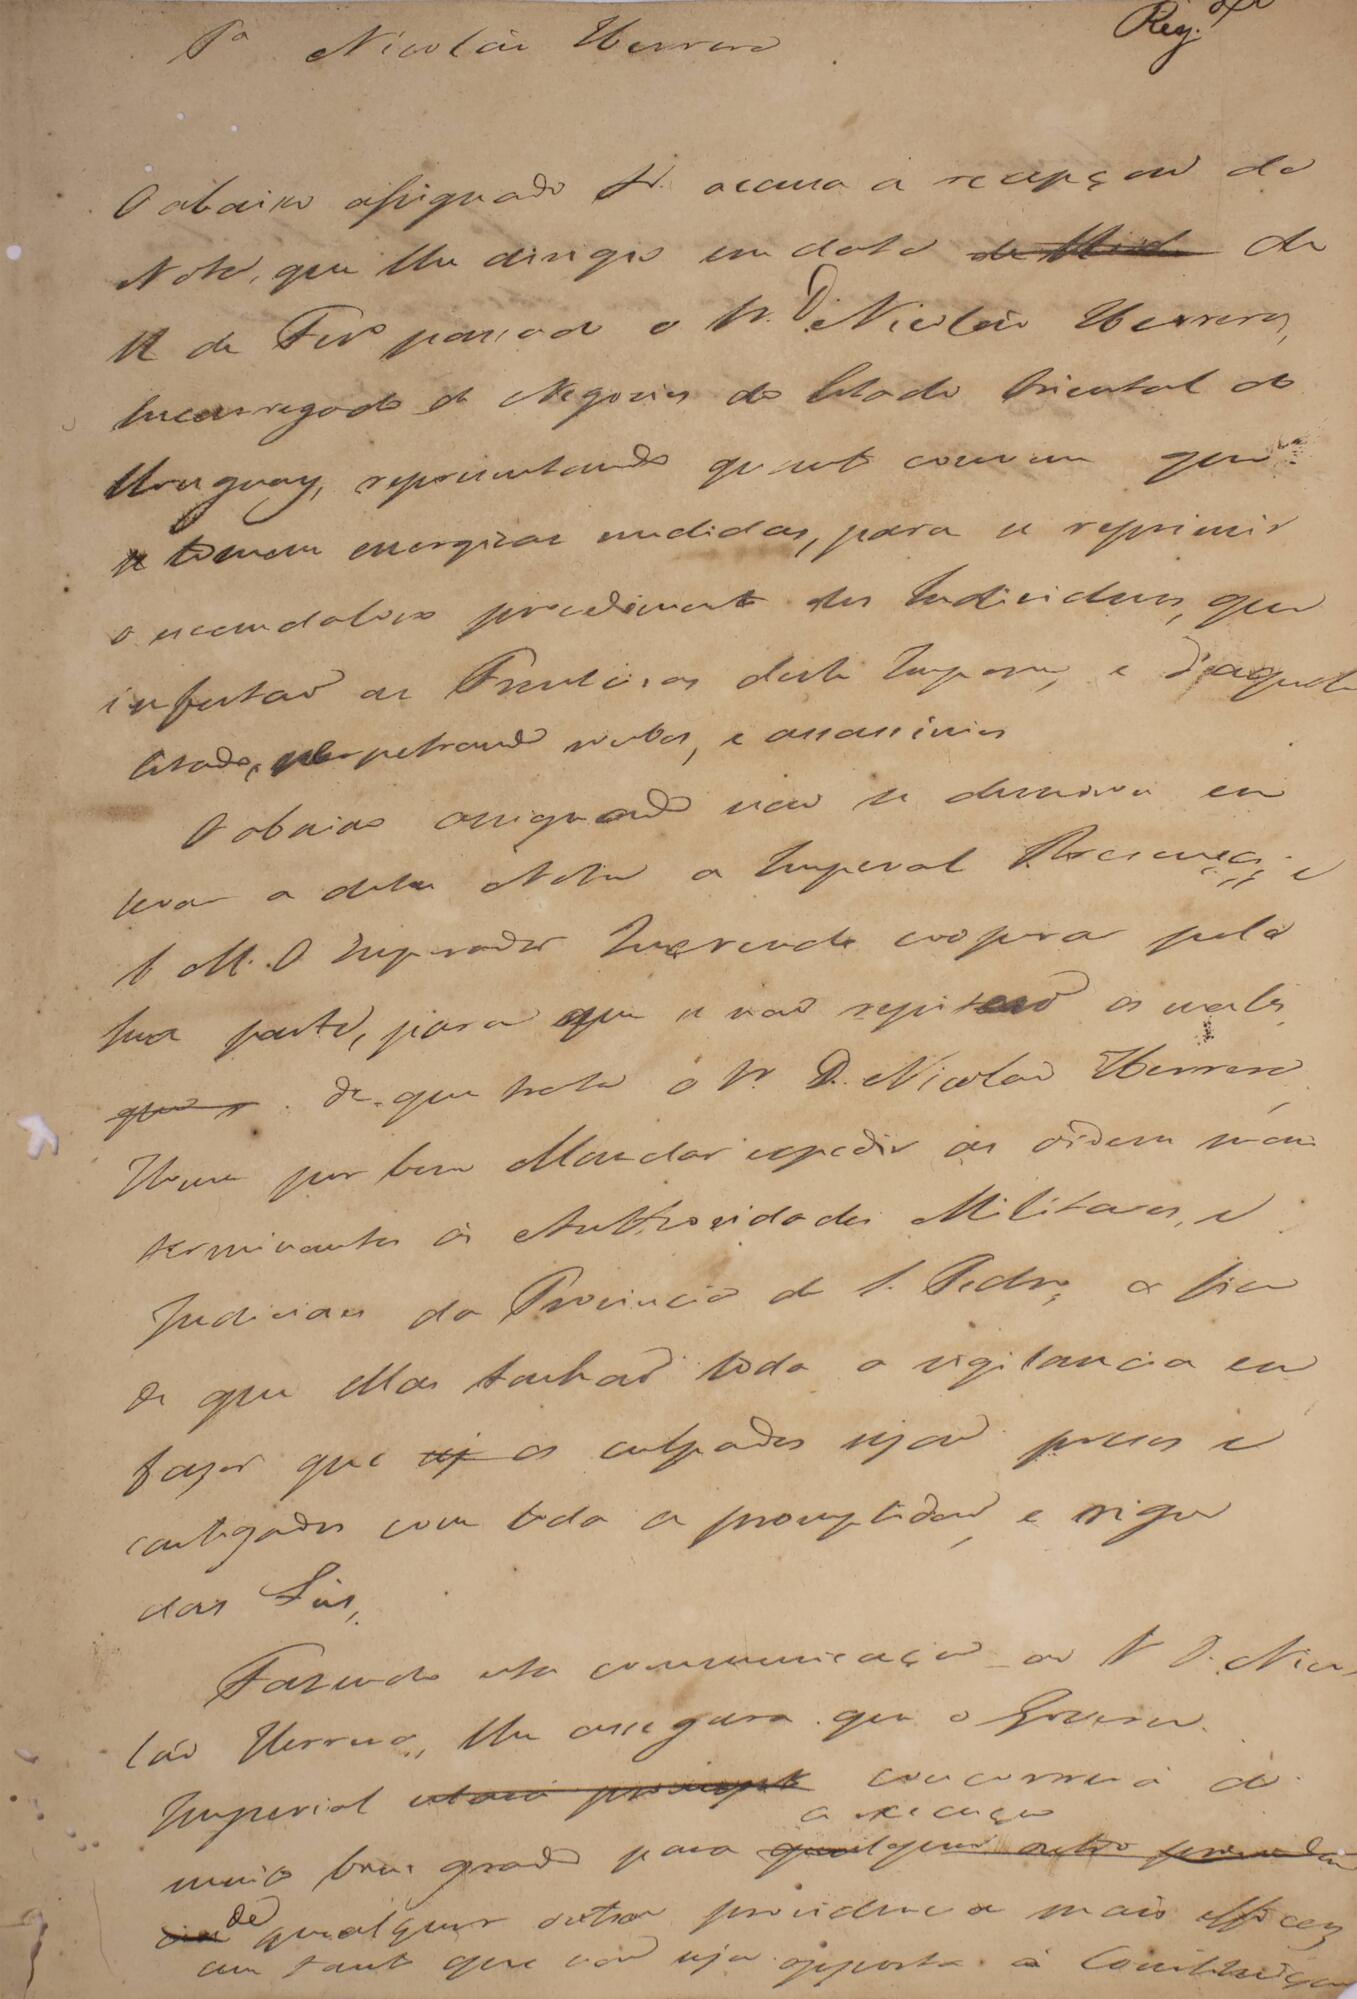 Pª Nicoláo Herrera
Reg.
O abaixo assignado &. accusa a recepçaõ da
Nota, que lhe dirigio em data de
de Fevº passado o Sr. D. Nicoláo Herrera,
Encarregado de Negocios do Estado Oriental do
Uruguay, representando quanto convem que
se tomem energicas medidas, para se reprimir
o escandaloso procedimento dos Individuos, que
infestaõ as Fronteiras deste Imperio, e d'aquele
Estado, perpetrando roubos, e assassinios
O abaixo assignado naõ se demorou em
levar a dita Nota a Imperial Presença; e
S. M. O Imperador Querendo cooperar pela
Sua parte, para que se naõ repitaõ os males,
de que trata o Sr. D. Nicolao Herrera,
Houve por bem Mandar expedir as ordens mais
terminantes ás Authoridades Militares, e
Judiciaes da Provincia de S. Pedro, a fim
de que ellas tenhaõ toda a vigilancia em
fazer que os culpados sejaõ presos e
castigados com toda a promptidaõ, e rigor
das Leis.
Fazendo esta communicaçaõ ao Sr. D. Nico-
láo Herrera, lhe assegura que o Governo
Imperial estará prompto concorrerá de
a execuçaõ
muito bom grado para qualquer outra providen
cia de qualquer outra providencia mais efficaz
em tanto que naõ seja opposta á Constituiçaõ